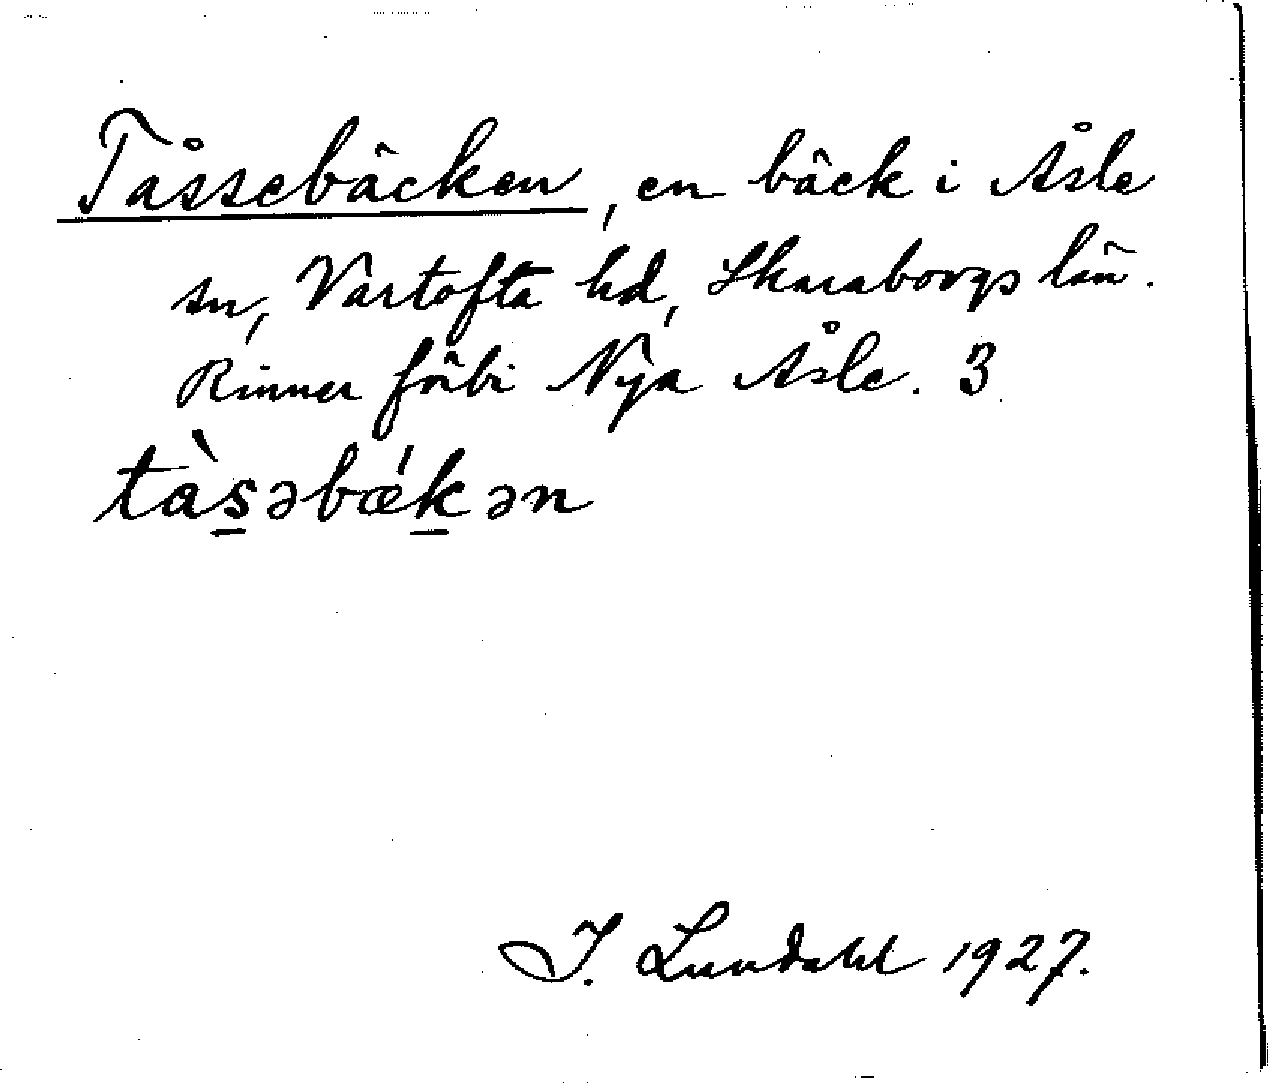 Tåssebäcken, en bäck i Åsle
sn, Vartofta hd, Skaraborgs län.
Rinner förbi Nya Åsle. 3
tàs̲əbǽk̲ən
I. Lundahl 1927.